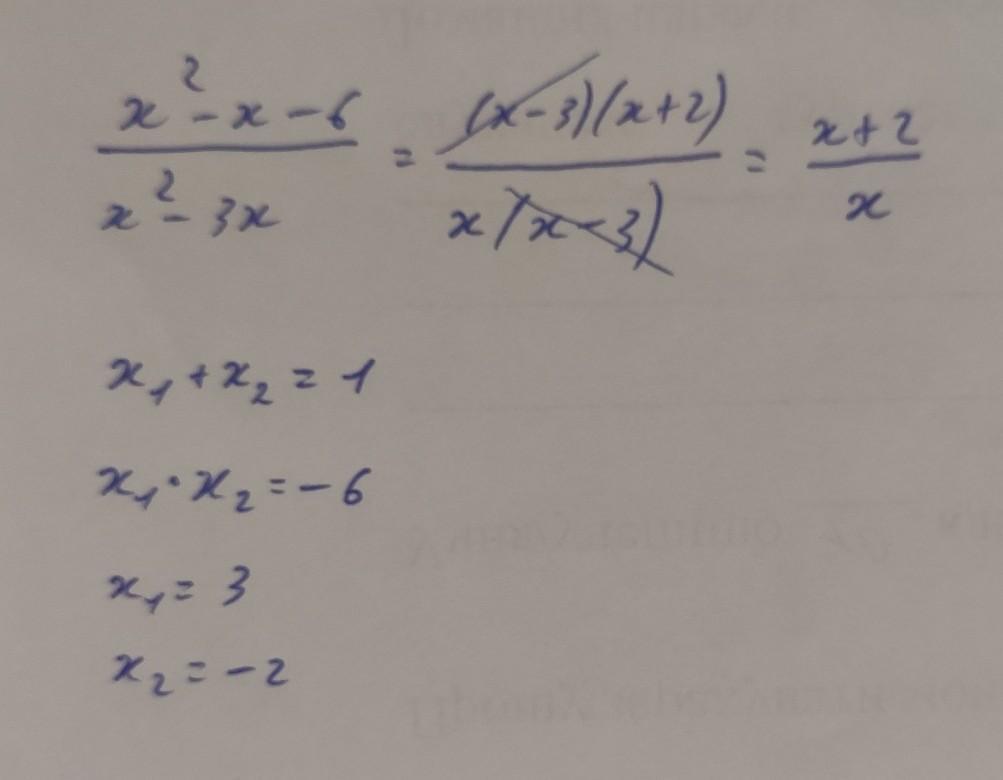 x² - x - 6 / x² - 3x = (x-3)(x+2) / x(x-3) = x+2 / x
x₁ + x₂ = 1
x₁ · x₂ = -6
x₁ = 3
x₂ = -2